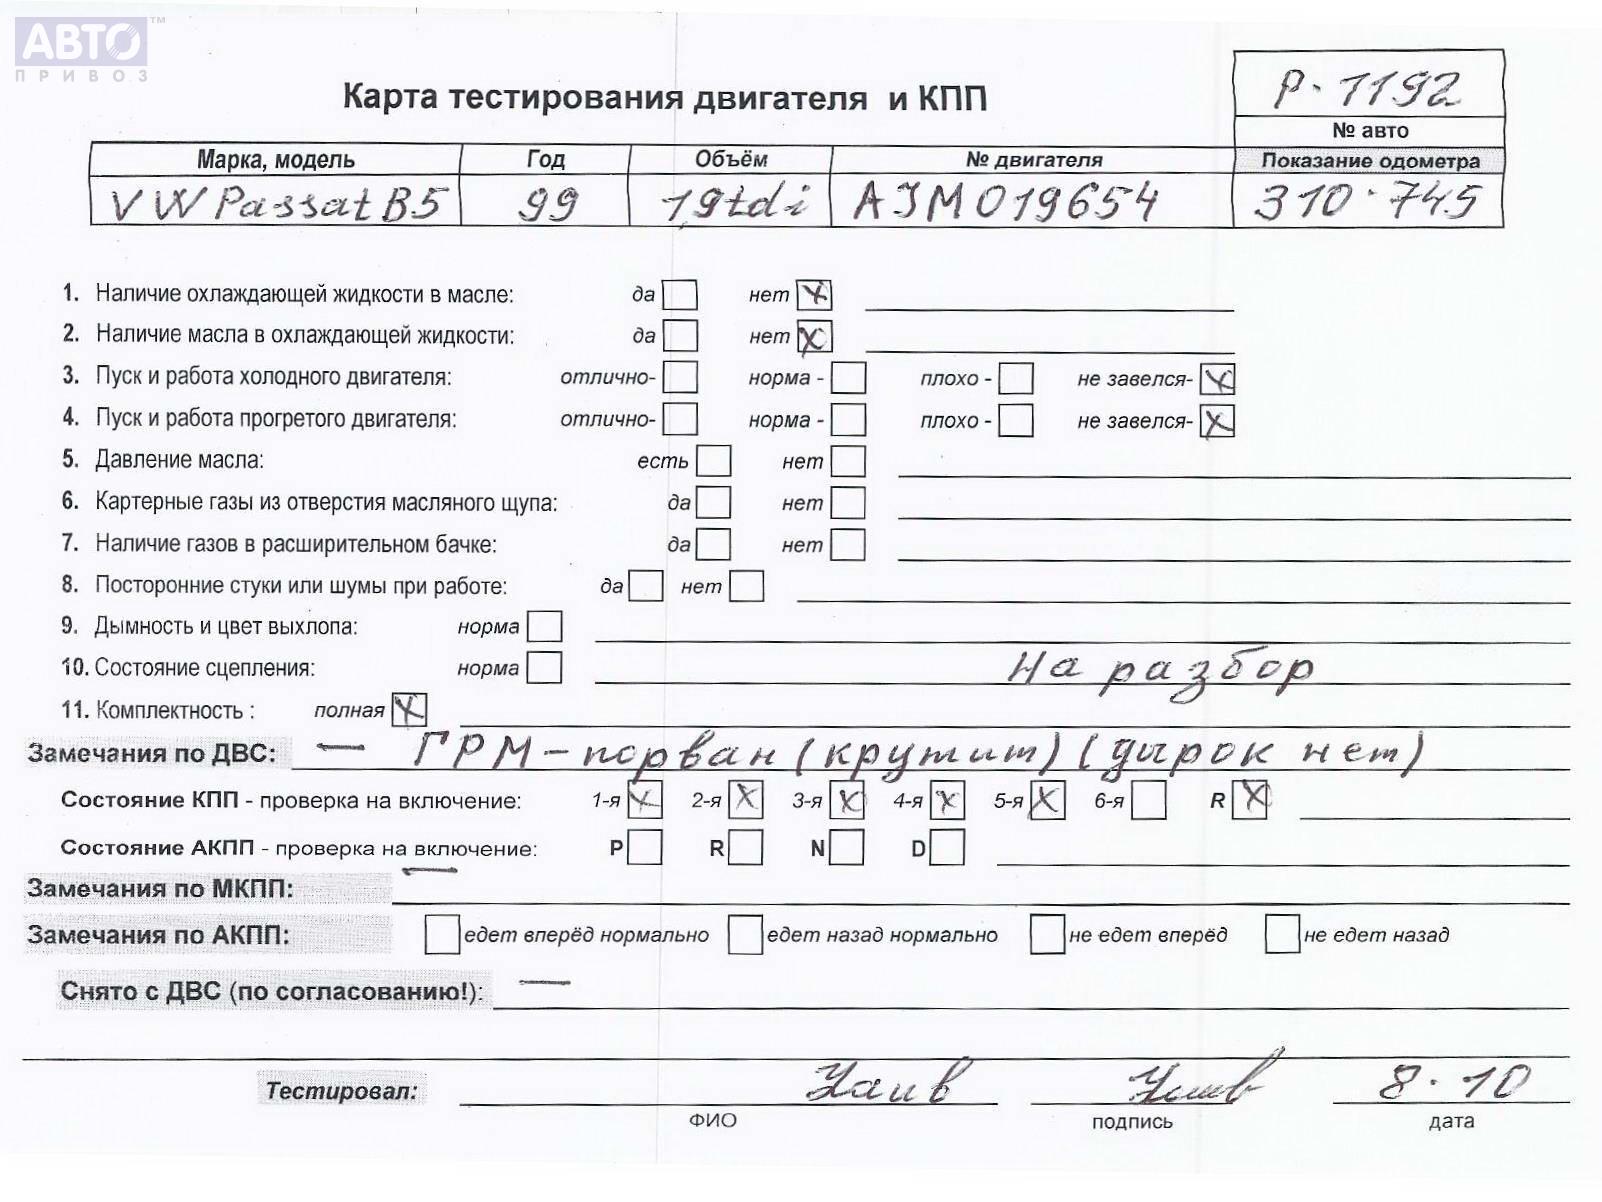 АВТО™
ПРИВОЗ
Р·1192
Карта тестирования двигателя и КПП
№ авто
Марка, модель Год Объём № двигателя Показание одометра
VW Passat B5 99 1,9tdi AJM019654 310·745
1. Наличие охлаждающей жидкости в масле: да нет X
2. Наличие масла в охлаждающей жидкости: да нет X
3. Пуск и работа холодного двигателя: отлично- норма - плохо - не завелся- X
4. Пуск и работа прогретого двигателя: отлично- норма - плохо - не завелся- X
5. Давление масла: есть нет
6. Картерные газы из отверстия масляного щупа: да нет
7. Наличие газов в расширительном бачке: да нет
8. Посторонние стуки или шумы при работе: да нет
9. Дымность и цвет выхлопа: норма
10. Состояние сцепления: норма На разбор
11. Комплектность : полная X
Замечания по ДВС: — ГРМ – порван (крутит) (дырок нет)
Состояние КПП - проверка на включение: 1-я X 2-я X 3-я X 4-я X 5-я X 6-я R X
Состояние АКПП - проверка на включение: P R N D
Замечания по МКПП: —
Замечания по АКПП: едет вперёд нормально едет назад нормально не едет вперёд не едет назад
Снято с ДВС (по согласованию!): —
Тестировал: 8·10
ФИО подпись дата